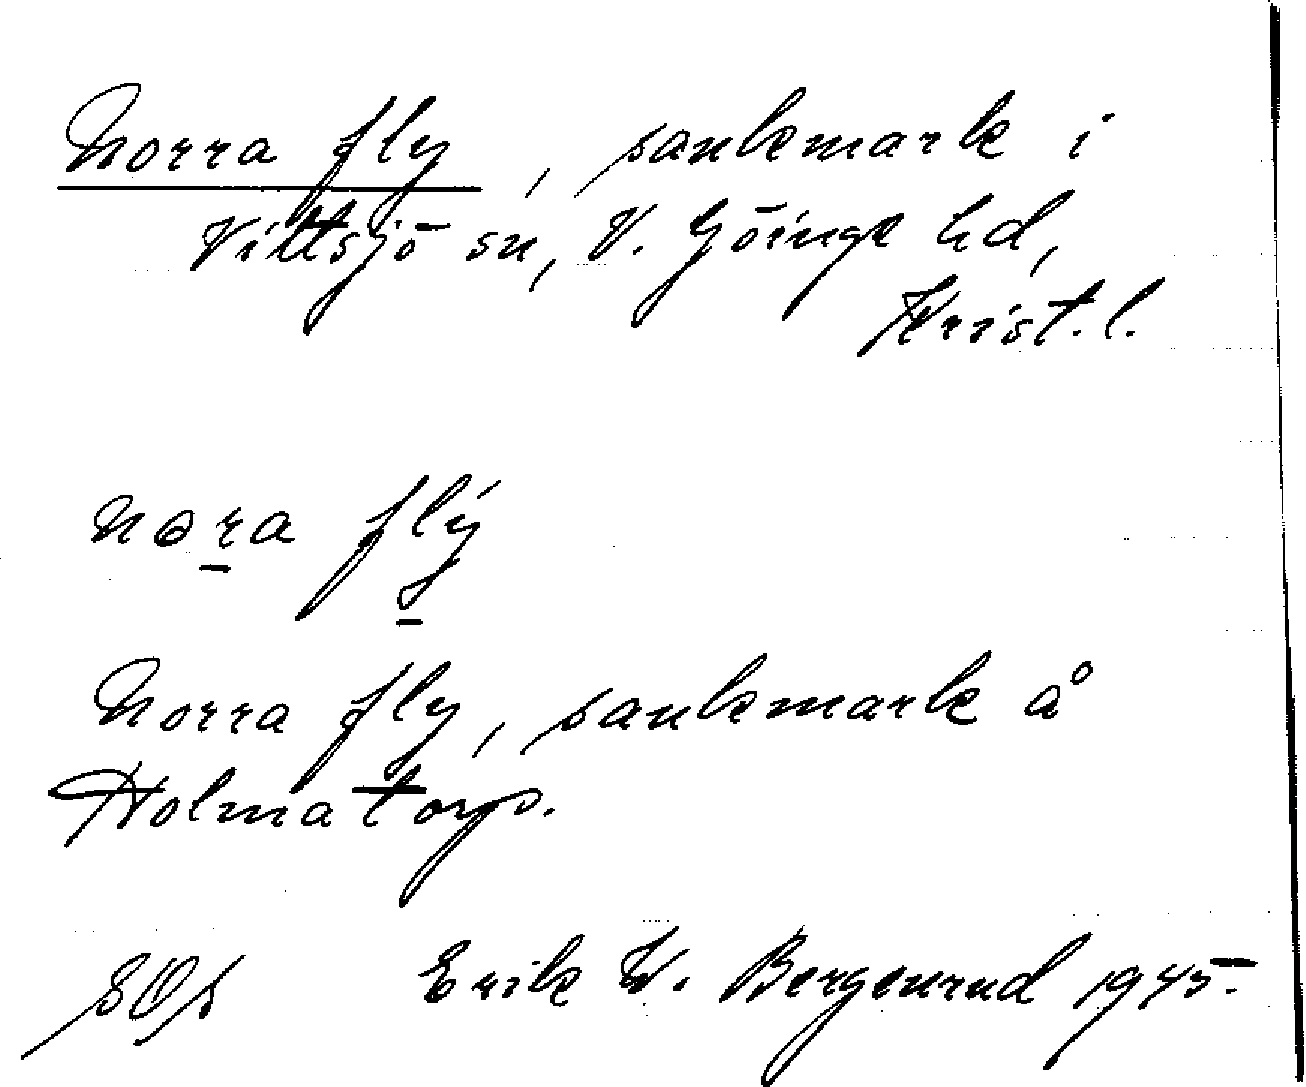 Norra fly, sankmark i
Vittsjö sn, V. Göinge hd,
Krist. l.
nora flý
Norra fly, sankmark å
Holmatorp.
Erik W. Bergenrud 1945.